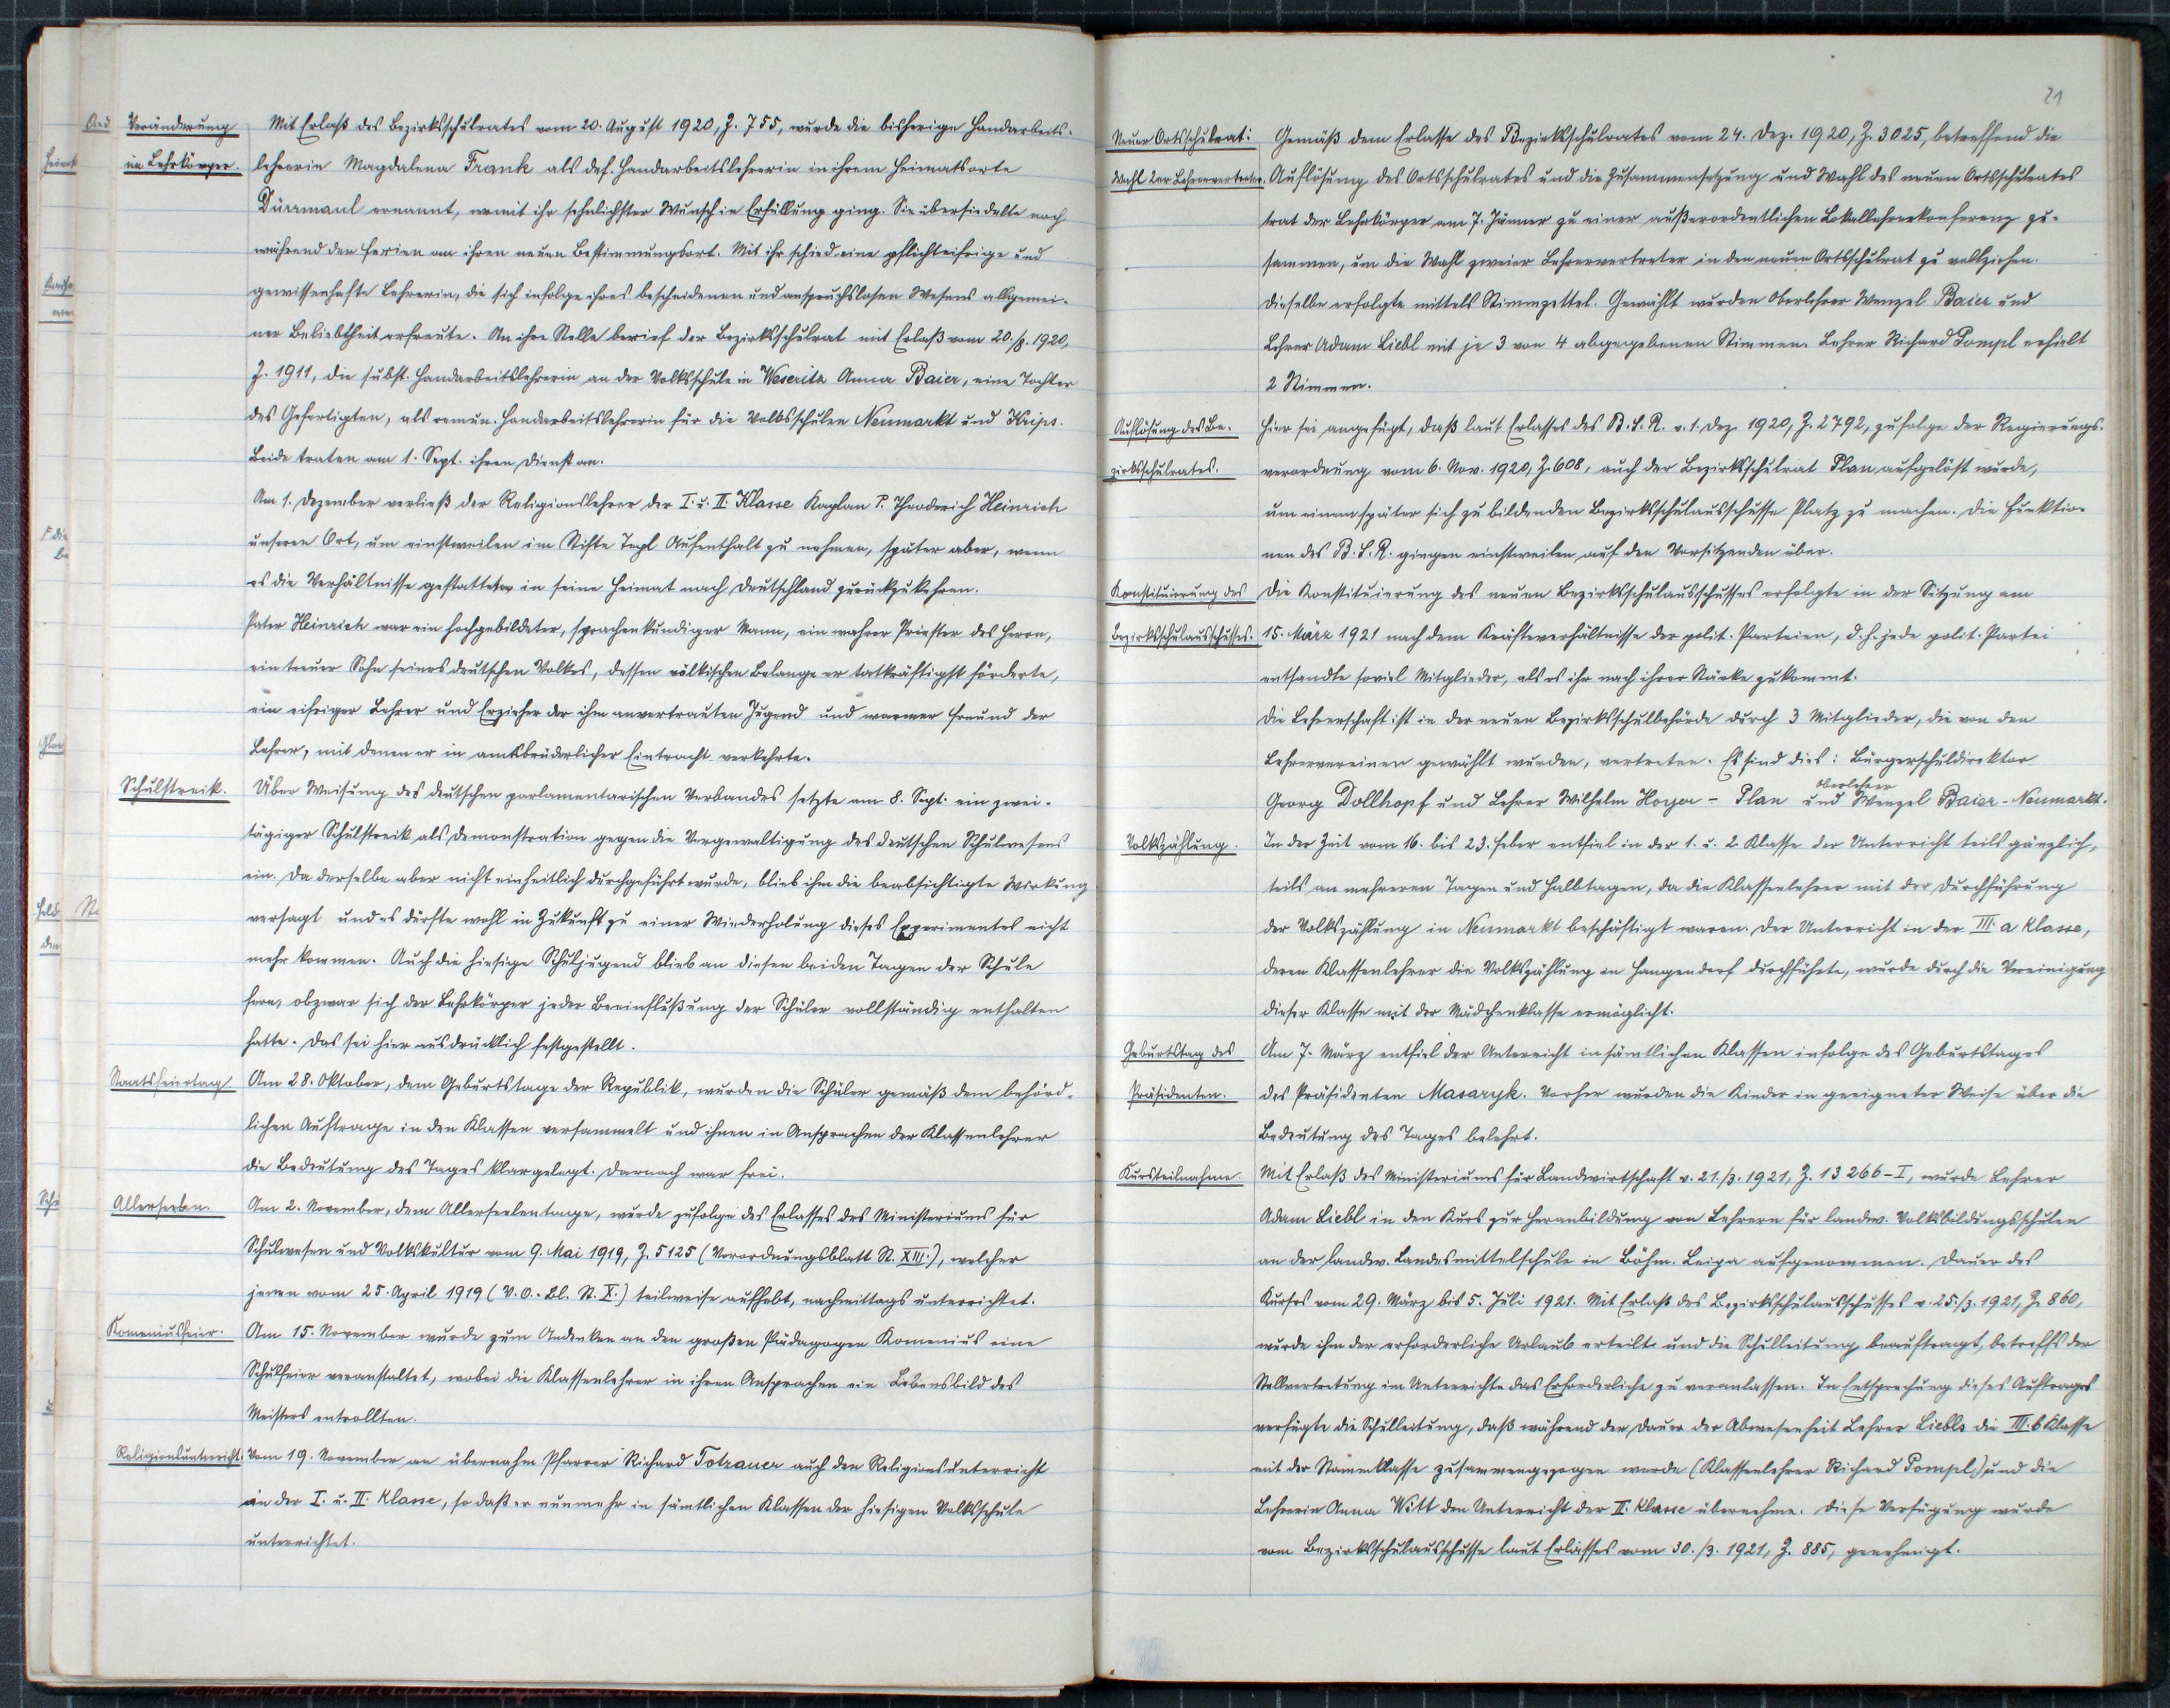 Veränderung
im Lehrkörper.
Mit Erlaß des Bezirksschulrates vom 20. August 1920, Z. 755, wurde die bisherige Handarbeits-
lehrerin Magdalena Frank als def. Handarbeitslehrerin in ihrem Heimatsorte
Dürrmaul ernannt, womit ihr sehnlichster Wunsch in Erfüllung ging. Sie übersiedelte noch
während der Ferien an ihren neuen Bestimmungsort. Mit ihr schied eine pflichteifrige und
gewissenhafte Lehrerin, die sich infolge ihres bescheidenen und anspruchslosen Wesens allgemei-
ner Beliebtheit erfreute. An ihre Stelle berief der Bezirksschulrat mit Erlaß vom 20./8. 1920,
Z. 1911, die subst. Handarbeitslehrerin an der Volksschule in Weseritz Anna Baier, eine Tochter
des Gefertigten, als remun. Handarbeitslehrerin für die Volksschulen Neumarkt und Krips.
Beide traten am 1. Sept. ihren Dienst an.
Am 1. Dezember verließ der Religionslehrer der I. u. II. Klasse Kaplan P. Theoderich Heinrich
unseren Ort, um einstweilen im Stifte Tepl Aufenthalt zu nehmen, später aber, wenn
es die Verhältnisse gestatteten in seine Heimat nach Deutschland zurückzukehren.
Pater Heinrich war ein hochgebildeter, sprachenkundiger Mann, ein wahrer Priester des Herrn,
ein treuer Sohn seines deutschen Volkes, dessen völkischen Belange er tatkräftigst förderte,
ein eifriger Lehrer und Erzieher der ihm anvertrauten Jugend und warmer Freund der
Lehrer, mit denen er in amtsbrüderlicher Eintracht verkehrte.
Schulstreik.
Über Weisung des deutschen parlamentarischen Verbandes setzte am 8. Sept. ein zwei-
tägiger Schulstreik als Demonstration gegen die Vergewaltigung des deutschen Schulwesens
ein. Da derselbe aber nicht einheitlich durchgeführt wurde, blieb ihm die beabsichtigte Wirkung
versagt und es dürfte wohl in Zukunft zu einer Wiederholung dieses Experimentes nicht
mehr kommen. Auch die hiesige Schuljugend blieb an diesen beiden Tagen der Schule
fern, obzwar sich der Lehrkörper jeder Beeinflußung der Schüler vollständig enthalten
hatte. Das sei hier ausdrücklich festgestellt.
Staatsfeiertag
Am 28. Oktober, dem Geburtstage der Republik, wurden die Schüler gemäß dem behörd-
lichen Auftrage in den Klassen versammelt und ihnen in Ansprachen der Klassenlehrer
die Bedeutung des Tages klargelegt. Darnach war frei.
Allerseelen.
Am 2. November, dem Allerseelentage, wurde zufolge des Erlasses des Ministeriums für
Schulwesen und Volkskultur vom 9. Mai 1919, Z. 5125 (Verordnungsblatt St. XIII.), welcher
jenen vom 25. April 1919 (V.O.-Bl. St. X.) teilweise aufhebt, nachmittags unterrichtet.
Komeniusfeier.
Am 15. November wurde zum Andenken an den großen Pädagogen Komenius eine
Schulfeier veranstaltet, wobei die Klassenlehrer in ihren Ansprachen ein Lebensbild des
Meisters entrollten.
Religionsunterricht.
Vom 19. November an übernahm Pfarrer Richard Totzauer auch den Religionsunterricht
in der I. u. II. Klasse, so daß er nunmehr in sämtlichen Klassen der hiesigen Volksschule
unterrichtet.
21
Neuer Ortsschulrat:
Wahl 2er Lehrervertreter.
Gemäß dem Erlasse des Bezirksschulrates vom 24. Dez. 1920, Z. 3025, betreffend die
Auflösung des Ortsschulrates und die Zusammensetzung und Wahl des neuen Ortsschulrates
trat der Lehrkörper am 7. Jänner zu einer außerordentlichen Lokallehrerkonferenz zu-
sammen, um die Wahl zweier Lehrervertreter in den neuen Ortsschulrat zu vollziehen.
Dieselbe erfolgte mittels Stimmzettel. Gewählt wurden Oberlehrer Wenzel Baier und
Lehrer Adam Liebl mit je 3 von 4 abgegebenen Stimmen. Lehrer Richard Pompl erhielt
2 Stimmen.
Auflösung des Be-
zirksschulrates.
Hier sei angefügt, daß laut Erlasses des B.S.R. v. 1. Dez. 1920, Z. 2792, zufolge der Regierungs-
verordnung vom 6. Nov. 1920, Z. 608, auch der Bezirksschulrat Plan aufgelöst wurde,
um einem später sich zu bildenden Bezirksschulausschusse Platz zu machen. Die Funktio-
nen des B.S.R. gingen einstweilen auf den Vorsitzenden über.
Konstituierung des
Bezirksschulausschusses.
Die Konstituierung des neuen Bezirksschulausschusses erfolgte in der Sitzung am
15. März 1921 nach dem Kräfteverhältnisse der polit. Parteien, d. h. jede polit. Partei
entsandte soviel Mitglieder, als es ihr nach ihrer Stärke zukommt.
Die Lehrerschaft ist in der neuen Bezirksschulbehörde durch 3 Mitglieder, die von den
Lehrervereinen gewählt wurden, vertreten. Es sind dies: Bürgerschuldirektor
Georg Dollhopf und Lehrer Wilhelm Hoyer - Plan und Oberlehrer Wenzel Baier - Neumarkt.
Volkszählung.
In der Zeit vom 16. bis 23. Feber entfiel in der 1. u. 2. Klasse der Unterricht teils gänzlich,
teils an mehreren Tagen und Halbtagen, da die Klassenlehrer mit der Durchführung
der Volkszählung in Neumarkt beschäftigt waren. Der Unterricht in der III. a Klasse,
deren Klassenlehrer die Volkszählung in Hangendorf durchführte, wurde durch die Vereinigung
dieser Klasse mit der Mädchenklasse ermöglicht.
Geburtstag des
Präsidenten.
Am 7. März entfiel der Unterricht in sämtlichen Klassen infolge des Geburtstages
des Präsidenten Masaryk. Vorher wurden die Kinder in geeigneter Weise über die
Bedeutung des Tages belehrt.
Kursteilnahme.
Mit Erlaß des Ministeriums für Landwirtschaft v. 21./3. 1921, Z. 13266-I, wurde Lehrer
Adam Liebl in den Kurs zur Heranbildung von Lehrern für landw. Volksbildungsschulen
an der landw. Landesmittelschule in Böhm. Leipa aufgenommen. Dauer des
Kurses vom 29. März bis 5. Juli 1921. Mit Erlaß des Bezirksschulausschusses v. 25./3. 1921, Z. 860,
wurde ihm der erforderliche Urlaub erteilt und die Schulleitung beauftragt, betreffs der
Stellvertretung im Unterrichte das Erforderliche zu veranlassen. In Entsprechung dieses Auftrages
verfügte die Schulleitung, daß während der Dauer der Abwesenheit Lehrer Liebls die III. b Klasse
mit der Stammklasse zusammengezogen werde (Klassenlehrer Richard Pompl) und die
Lehrerin Anna Witt den Unterricht der II. Klasse übernehme. Diese Verfügung wurde
vom Bezirksschulausschusse laut Erlasses vom 30./3. 1921, Z. 885, genehmigt.